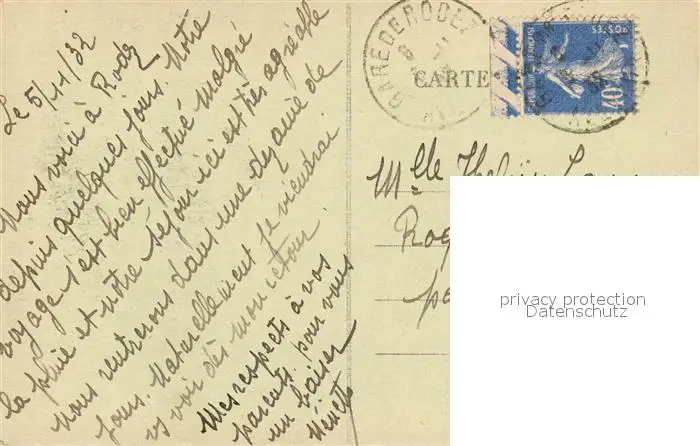 Le 5/11/32
Nous voici à Rodez
depuis quelques jours. Notre
voyage s'est bien effectué malgré
la pluie et notre séjour ici est très agréable
Nous rentrerons dans une dizaine de
jours. Naturellement je viendrai
vs voir dès mon retour.
Mes respects à vos
parents. pour vous
un baiser
GARE DE RODEZ
CARTE
40
Mlle
privacy protection
Datenschutz